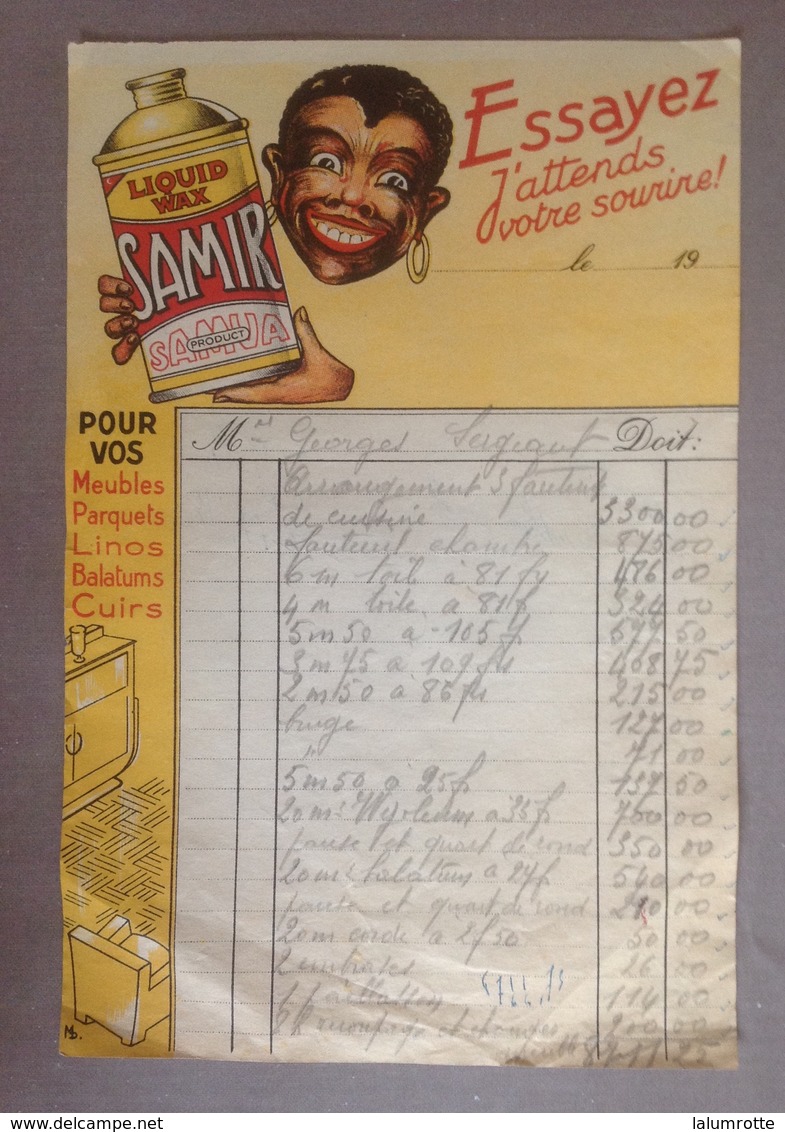 LIQUID
WAX
SAMIR
SAMVA
PRODUCT
Essayez
J'attends
votre sourire!
le 19
POUR
VOS
Meubles
Parquets
Linos
Balatums
Cuirs
Mr Georges Sergeant Doit:
Arrangement 3 fauteuils
de cuisine 3300 00
fauteuil chambre 875 00
6 m toile à 81 fs 476 00
4 m toile a 81 f 324 00
5 m 50 a 105 f 577 50
3 m 75 a 109 fs 408 75
2 m 50 à 86 fs 215 00
127 00
" 71 00
5 m 50 a 25 f 137 50
20 m² a 35 f 700 00
et quart de rond 350 00
20 m² balatum a 27 f 540 00
et quart de rond 00
20 m corde a 2f50 50 00
2 26 00
1 paillasson 114 00
2 h et 200 00
25
MD.
delcampe.net
lalumrotte